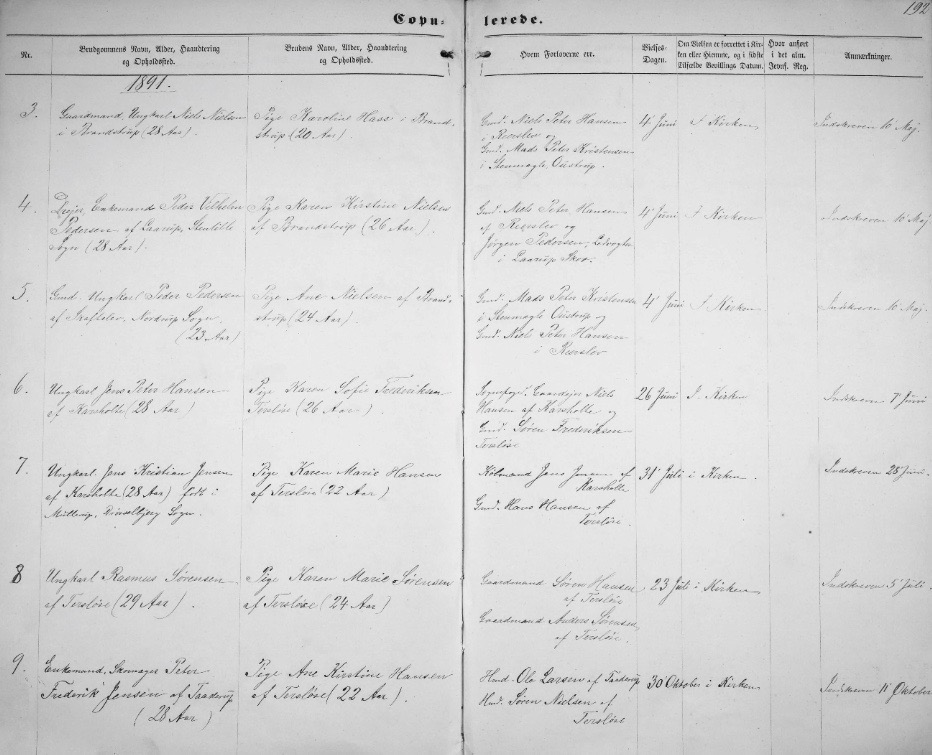 192
Copulerede.
Nr.
Brudgommens Navn, Alder, Haandtering
og Opholdssted.
Brudens Navn, Alder, Haandtering
og Opholdssted.
Hvem Forloverne ere.
Vielses-
Dagen.
Om Vielsen er forrettet i Kir-
ken eller Hjemme, og i sidste
Tilfælde Bevillings Datum.
Hvor anført
i det alm.
Jevnf. Reg.
Anmærkninger.
1891.
3.
Gaardmand, Ungkarl Niels Nielsen
i Brandstrup (28 Aar).
Pige Karoline Hass i Brand-
strup (20 Aar).
Gmd. Niels Peter Hansen
i Ravslev og
Gmd. Mads Peter Kristensen
i Stenmagle Oustrup.
4' Juni
I Kirken
Indskreven 10' Maj.
4.
Enkemand Peder Vilhelm
Pedersen af Laarup, Stenlille
Sogn (28 Aar)
Pige Karen Kirstine Nielsen
af Brandstrup (26 Aar).
Gmd. Niels Peter Hansen
af Ravslev og
Jørgen Pedersen, Ledvogter
i Laarup Skov.
4' Juni
I Kirken
Indskreven 10' Maj
5.
Gmd. Ungkarl Peder Pedersen
af Nordrup Sogn
(23 Aar)
Pige Ane Nielsen af Brand-
strup (24 Aar)
Gmd. Mads Peter Kristensen
i Stenmagle Oustrup og
Gmd. Niels Peter Hansen
i Ravslev
4' Juni
I Kirken
Indskreven 10' Maj
6.
Ungkarl Jens Peter Hansen
af Karsholte (28 Aar)
Pige Karen Sofie Frederiksen
Tersløse (26 Aar)
Sognefoged, Gaardejer Niels
Hansen af Karsholte og
Gmd. Søren Frederiksen
Tersløse
26 Juni
I Kirken
Indskreven 7' Juni
7.
Ungkarl Jens Kristian Jensen
af Karsholte (28 Aar) født i
Mullerup, Drøsselbjerg Sogn.
Pige Karen Marie Hansen
af Tersløse (22 Aar)
Jens Jensen af
Karsholte
Gmd. Hans Hansen af
Tersløse.
31' Juli
i Kirken
Indskreven 28' Juni
8
Ungkarl Rasmus Sørensen
af Tersløse (29 Aar)
Pige Karen Marie Sørensen
af Tersløse (24 Aar)
Gaardmand Søren Hansen
af Tersløse
Gaardmand Anders Sørensen,
af Tersløse.
23 Juli
i Kirken
Indskreven 5' Juli
9.
Enkemand, Skomager Peter
Frederik Jensen af Taaderup
(28 Aar)
Pige Ane Kirstine Hansen
af Tersløse (22 Aar)
Hmd. Ole Larsen af Taaderup
Hmd. Søren Nielsen af
Tersløse
30' Oktober
i Kirken
Indskreven 11' Oktober